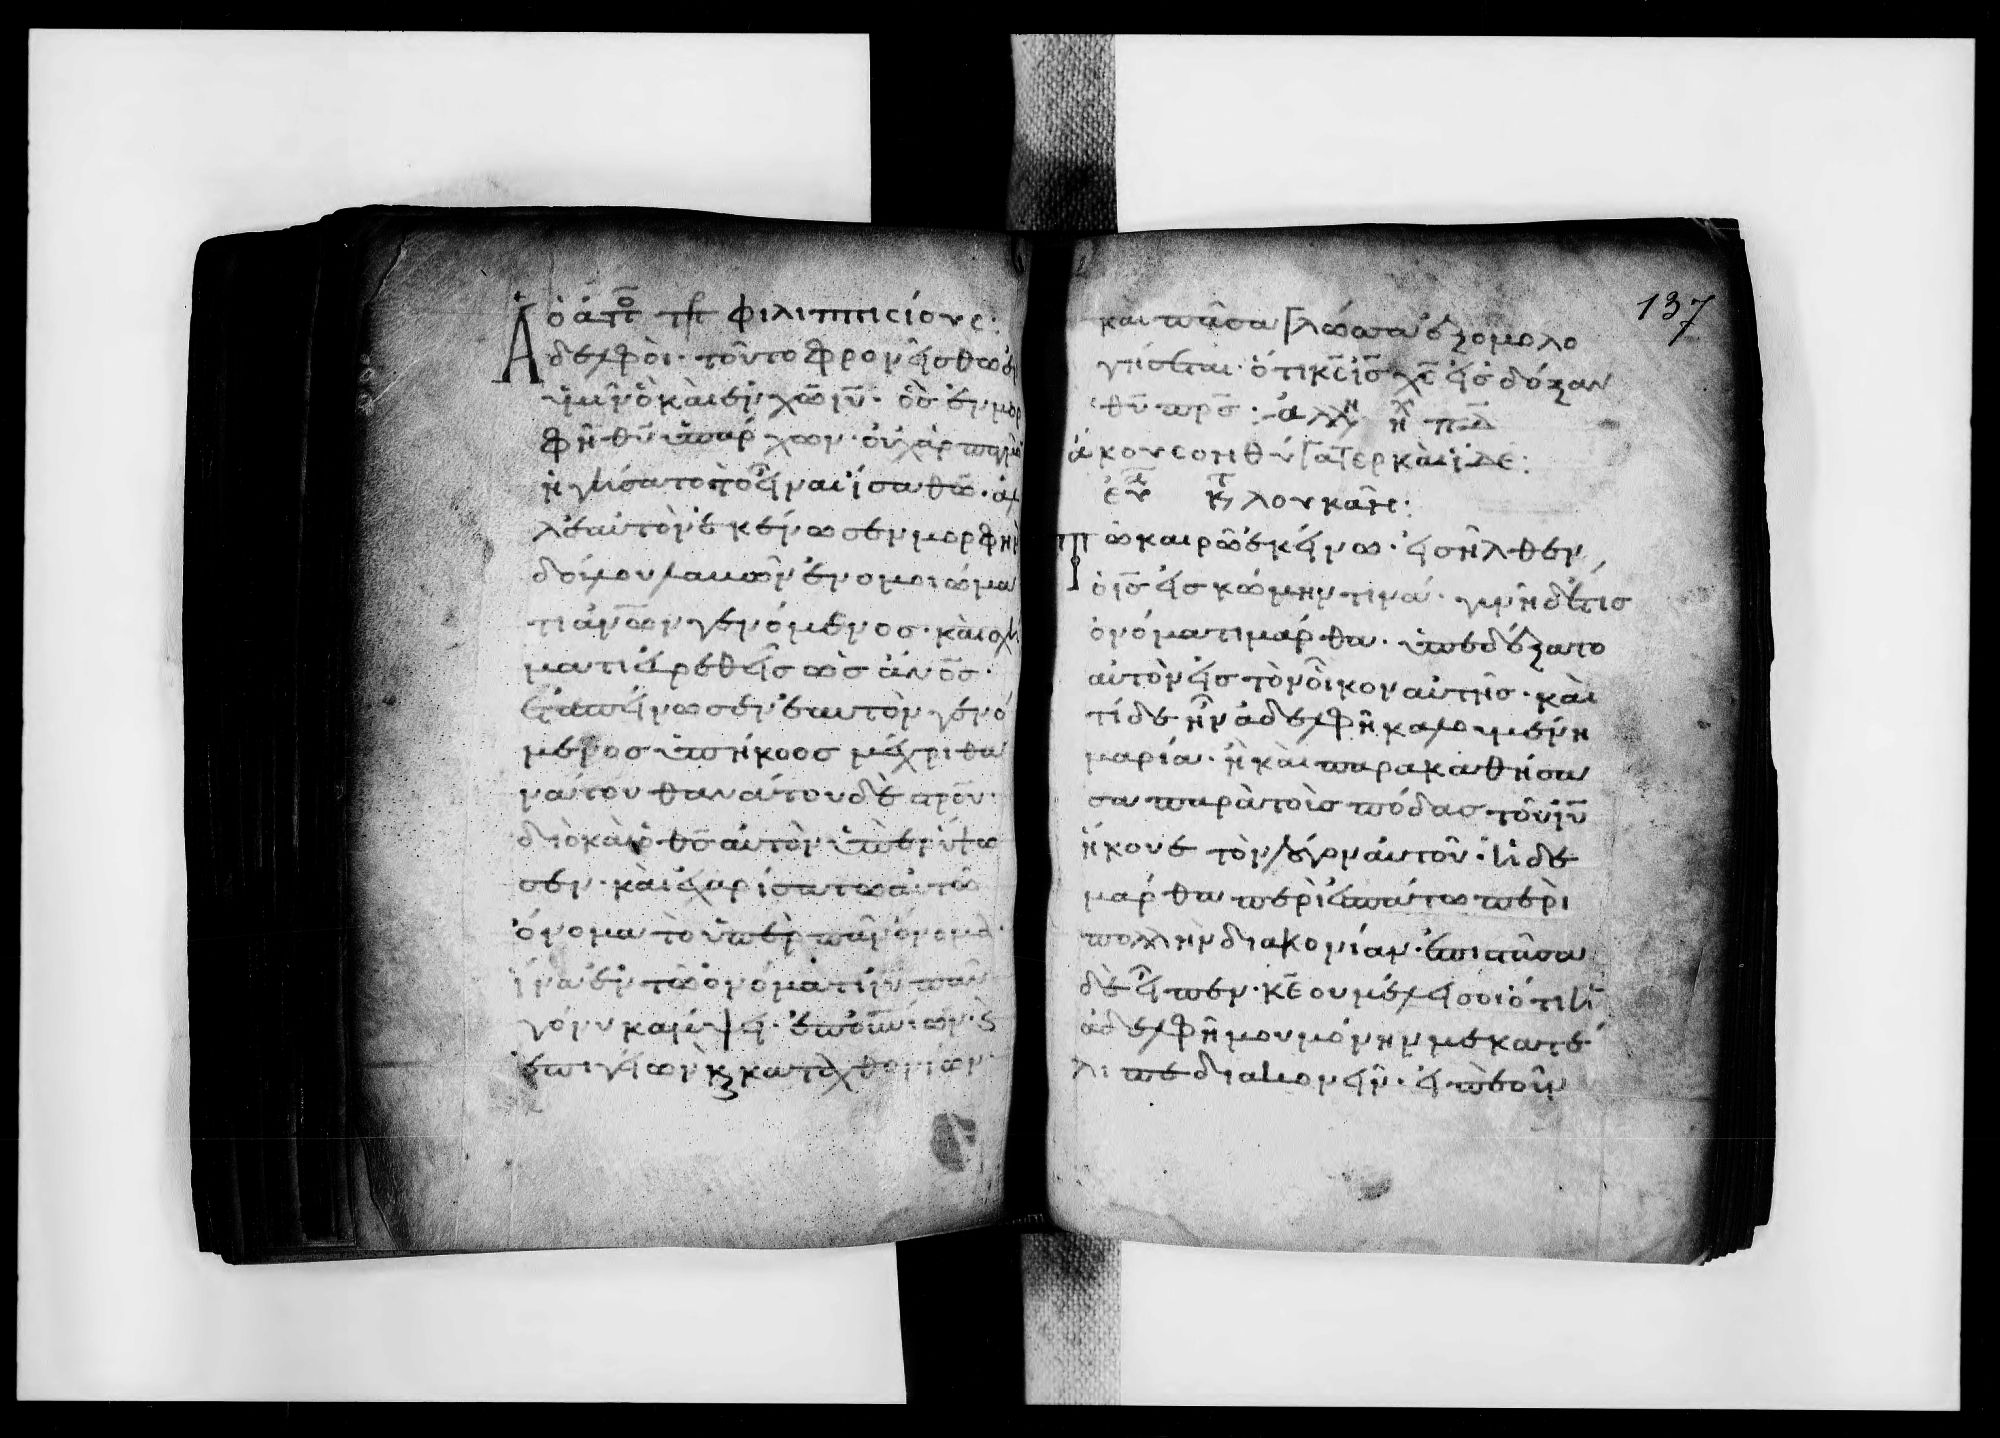 ὁ ἀπο πρ φιλιππισίους:
Ἀδελφοὶ· τοῦτο φρονείσθω ἐ
ὑμῖν ὃ καὶ ἐν χω ιυ· ὃσ ἐν μορ
φῆ θυ ὑπάρχων· οὐχ ἁρπαγμὸ
ἡγήσατο τὸ εἶναι ἴσα θω· ἀλ
λεαυτὸν ἐκένωσεν μορφὴν
δούλου λαβὼν ἐν ομοιώμα
τι ανων γενόμενοσ· καὶ σχή
ματι εὑρεθεὶσ ὡσ ἀνοσ·
ἐταπείνωσεν ἑαυτὸν γενό
μενοσ ὑπήκοοσ μέχρι θα
νάτου θανάτου δὲ στρου·
διὸ καὶ ὁ θσ αὐτὸν ὑπερύψω
σεν· καὶ ἐχαρίσατω αὐτῶ
ὄνομα τὸ ὑπὲρ πᾶν ὄνομα·
ἵνα ἐν τῶ ὀνόματι ιυ παν
γόνυ κάμψει· ἐπουνίων· ϗ
ἐπιγείων ϗ καταχθονίων·
137
και πᾶσα γλῶσσα ἐξομολο
γήσεται· ὅτι κσ ισ χσ εἰσ δόξαν
θυ πρσ: ἀλλη χ η πλ
ἄκουσον θύγατερ καὶ ἰδε:
ευα κτ λουκᾶν:
Τῶ καιρῶ ἐκείνω· εἰσῆλθεν
ὁ ισ εἰσ κώμην τινά· γυνὴ δέ τισ
ὀνόματι μάρθα· ὑπεδέξατο
αὐτὸν εἰσ τὸν οἶκον αὐτῆσ· καὶ
τίδε ἦν ἀδελφὴ καλουμένη
μαρία· ἣ καὶ παρακαθήσα
σα παρὰ τοὶσ πόδασ τοῦ ιυ
ἤκουε τὸν λόγον αὐτοῦ· ἡ δὲ
μάρθα περιεσπάτω περὶ
πολλὴν διακονίαν· ἐπιστᾶσα
δὲ εἶπεν· κε ου μέλει σοι ὅτι ἡ
ἀδελφή μου μόνην με κατέ
λιπε διακονεῖν· εἰπὲ οὖν